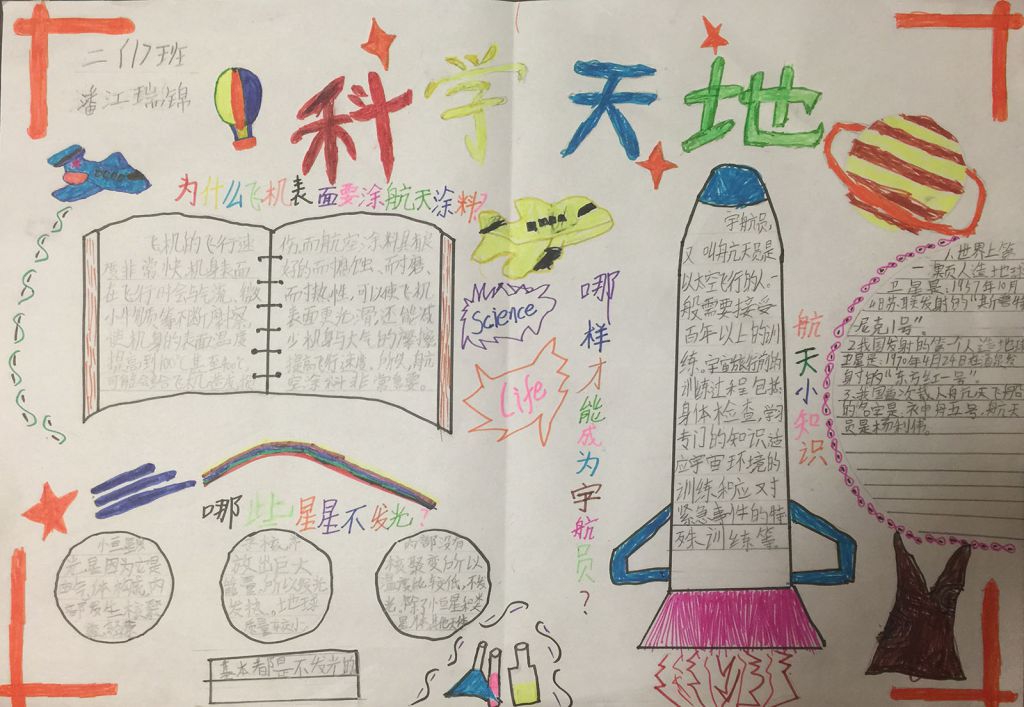 二(1)班
潘江瑞锦
科学天地
为什么飞机表面要涂航天涂料?
飞机的飞行速
度非常快,机身表面
在飞行时会与气流、微
小
使机身的表面温度
提高到100℃甚至
可能会给飞机造成损
伤,而航空涂料具很
好的耐腐蚀、耐磨、
耐热性,可以使飞机
表面更光滑,还能减
少机身与大气的摩擦,
提高飞行速度。所以,航
空涂料非常重要。
Science
Life
哪样才能成为宇航员?
宇航员,
又叫航天员是
以太空飞行的人,一
般需要接受
百年以上的训
练。宇宙旅行前的
训练过程包括
身体检查,学习
专门的知识适
应宇宙环境的
训练和应对
紧急事件的特
殊训练等。
航天小知识
1.世界上第
一颗人造地球
卫星是,1957年10月
4日苏联发射的"斯普特
尼克1号"。
2.我国发射的第一个人造地球
卫星是,1970年4月24日在酒泉发
射的"东方红一号"。
3.我国首次载人航天飞船
的名字是,神舟五号,航天
员是杨利伟。
哪些星星不发光?
小恒星
发光是因为它是
由气体构成,内
部发生核聚
变
放出巨大
能量,所以发光
发热。地球
质量较小
内部没有
核裂变,所以
温度比较低,不发
光,除了小恒星和类
星体,其他天体
基本都是不发光的